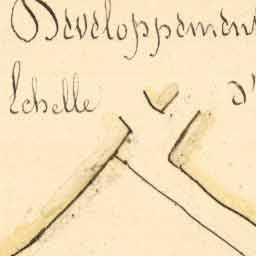 Développement
Echelle d'